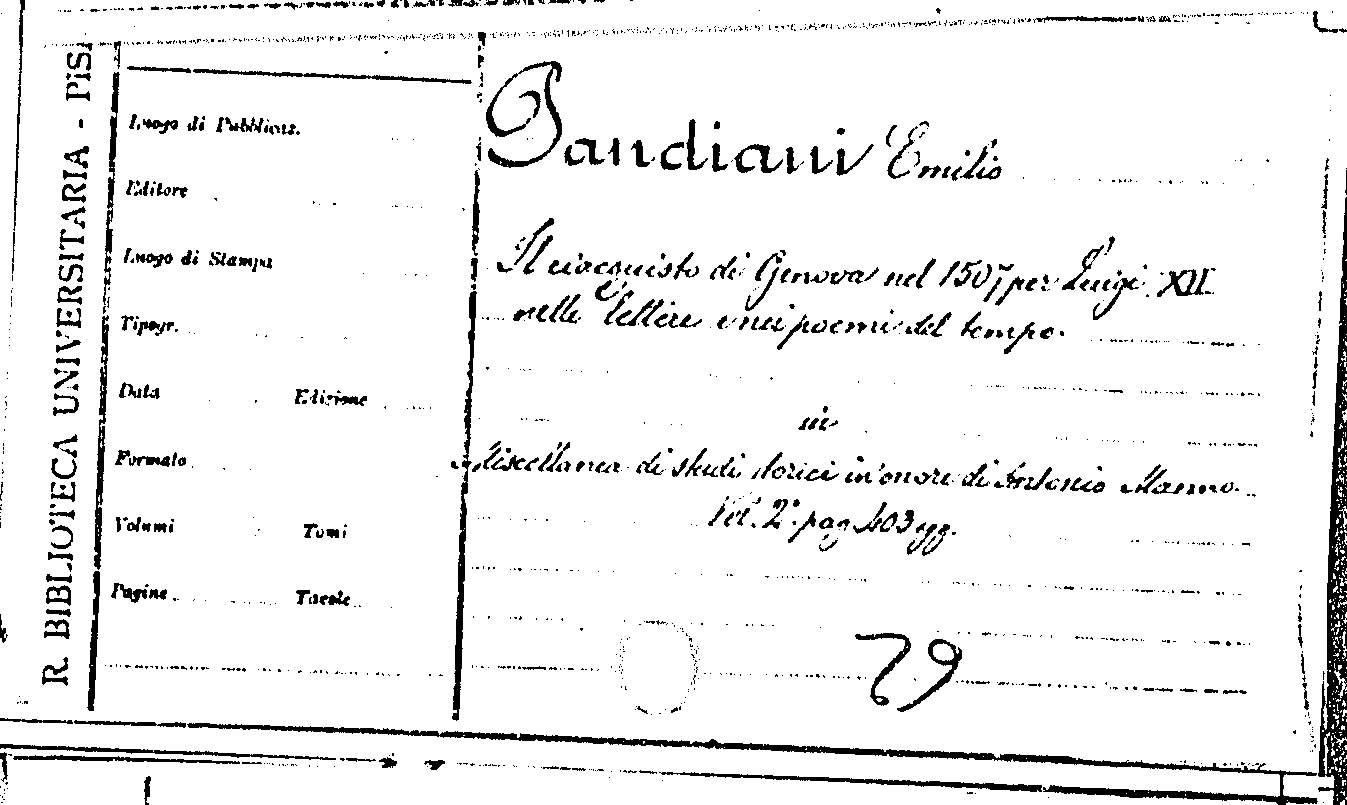 R. BIBLIOTECA UNIVERSITARIA - PISA
Luogo di Pubblicaz.
Editore
Luogo di Stampa
Tipogr.
Data Edizione
Formato
Volumi Tomi
Pagine Tavole
Pandiani Emilio
Il riacquisto di Genova nel 1507 per Luigi XII
nelle lettere e nei poemi del tempo.
in
Miscellanea di studi storici in onore di Antonio Manno.
Vol. 2º. pag. 403 sgg.
29